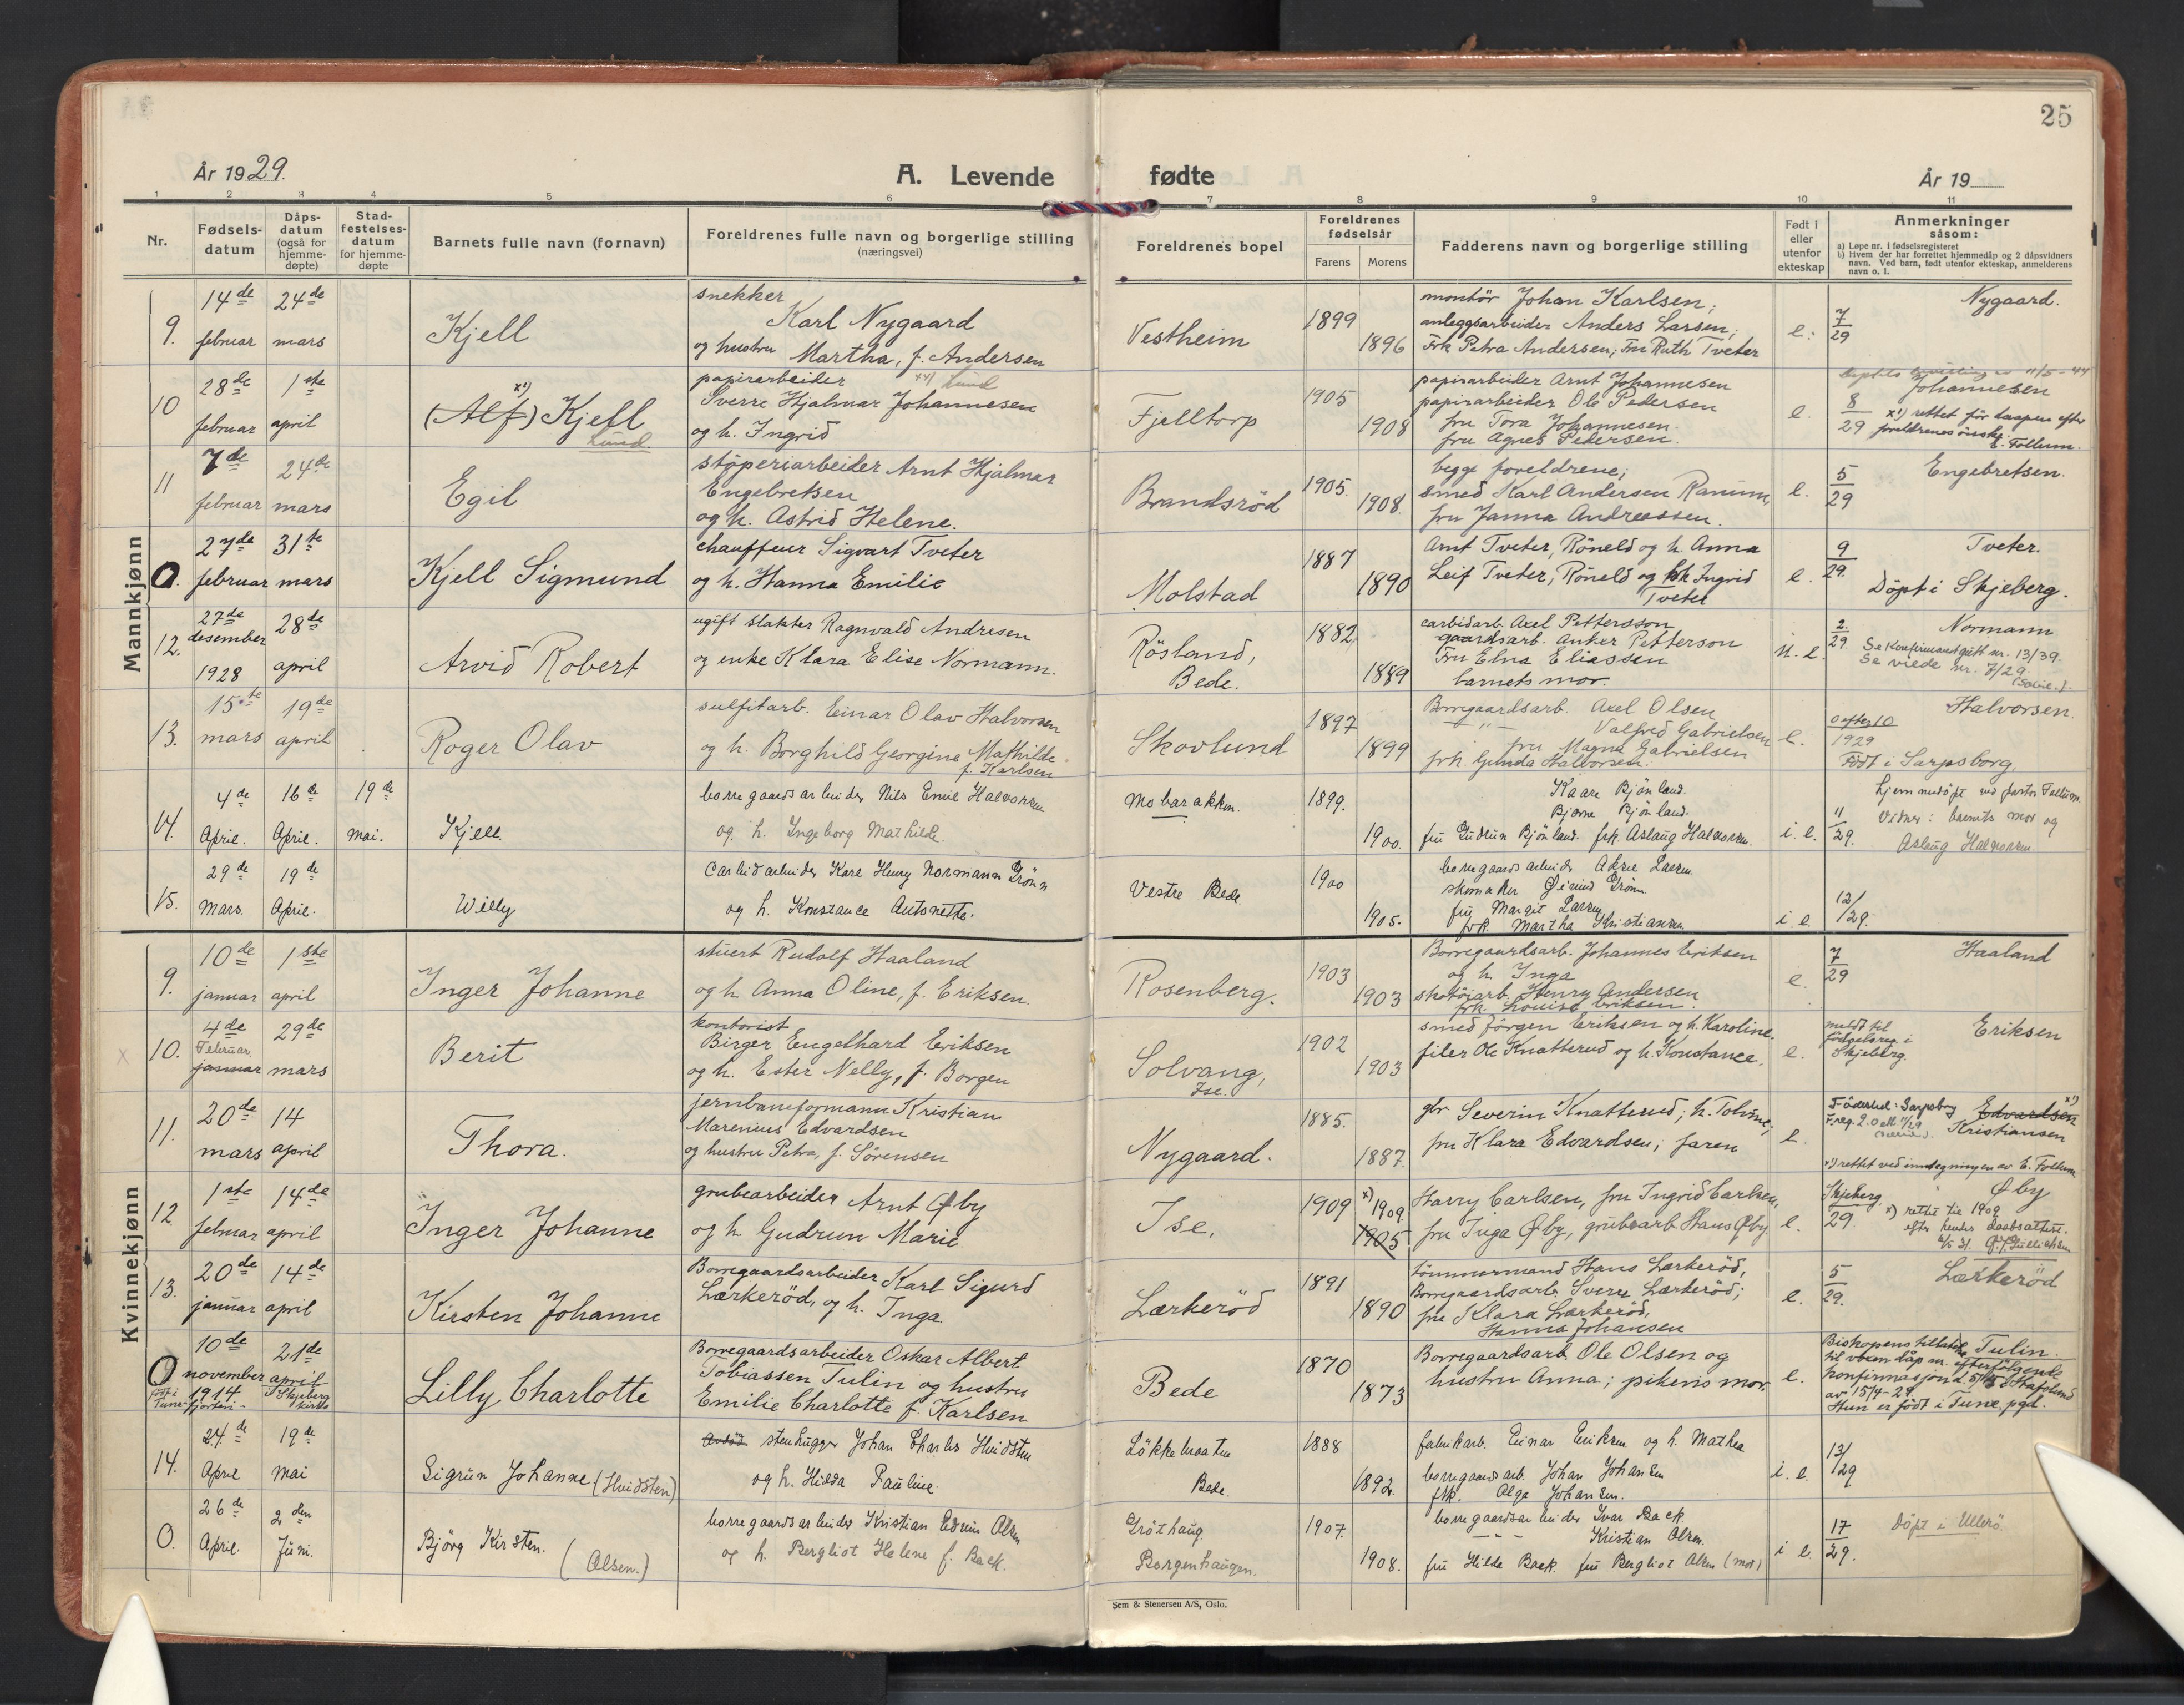 25
År 1929.
A. Levende fødte
År 19
1 2 3 4 5 6 7 8 9 10 11
Nr.
Fødsels-datum
Dåps-datum (også for hjemme-døpte)
Stad-festelses-datum for hjemme-døpte
Barnets fulle navn (fornavn)
Foreldrenes fulle navn og borgerlige stilling (næringsvei)
Foreldrenes bopel
Foreldrenes fødselsår
Farens
Morens
Fadderens navn og borgerlige stilling
Født i eller utenfor ekteskap
Anmerkninger såsom:
a) Løpe nr. i fødselsregisteret
b) Hvem der har forrettet hjemmedåp og 2 dåpsvidners navn. Ved barn, født utenfor ekteskap, anmelderens navn o. l.
Mannkjønn
9. 14de februar 24de mars
Kjell
snekker
Karl Nygaard
og hustru Martha, f. Andersen
Vestheim
1899 1896
montör Johan Karlsen;
anleggsarbeider Anders Larsen;
Frk Petra Andersen; Fru Ruth Tveter
e.
7/29
Nygaard.
10 28de februar 1ste april
(Alf) x1) Kjell
Lund.
papirarbeider xx) Lund
Sverre Hjalmar Johannesen
og h. Ingrid
Fjelltorp
1905 1908
papirarbeider Arnt Johannesen
papirarbeider Ole Pedersen
fru Tora Johannesen
fru Agnes Pedersen.
e.
11/5-44
Johannesen
8/29 x1) rettet før daapen efter
foreldrenes ønske.
E. Follum.
11 7de februar 24de mars
Egil
støperiarbeider Arnt Hjalmar
Engebretsen
og h. Astrid Helene.
Brandsröd
1905. 1908.
begge foreldrene;
smed Karl Andersen Ramum,
fru Janna Andreassen.
e.
5/29
Engebretsen.
O. 27de februar 31te mars
Kjell Sigmund
chauffeur Sigvart Tveter
og h. Hanna Emilie
Molstad
1887 1890
Arnt Tveter, Röneld og h. Anna
Leif Tveter, Röneld og frk Ingrid
Tveter
e.
9/29.
Tveter.
Döpt i Skjeberg.
12. 27de desember 1928 28de april
Arvid Robert
ugift slakter Ragnvald Andresen
og enke Klara Elise Normann.
Rösland,
Bede.
1882 1889
carbidarb. Axel Pettersson
gaardsarb. Anker Petterson
Fru Elna Eliassen
barnets mor.
u.e.
2./29.
Normann
Se Konfirmant gutt nr. 13/39.
Se viede nr. 7/29
13. 15te mars 19de april
Roger Olav
sulfitarb. Einar Olav Halvorsen
og h. Borghild Georgine Mathilde
f. Karlsen
Skovlund
1897 1899
Borregaardsarb. Axel Olsen
— " — Valfred Gabrielsen
fru Magna Gabrielsen
frk. Gunda Halvorsen.
e.
0 efter 10
1929
Halvorsen.
Född i Sarpsborg.
14. 4de April. 16de April. 19de Mai.
Kjell.
borregaardsarbeider Nils Emil Halvorsen
og h. Ingeborg Mathilde.
Mobarakken.
1899. 1900.
Kaare Bjönland.
Bjarne Bjönland.
fru Gudrun Bjönland. frk. Aslaug Halvorsen.
i. e.
11/29.
hjemmedöpt ved pastor Follum.
Vidner: barnets mor og
Aslaug Halvorsen
15. 29de Mars. 19de April.
Willy
Carbidarbeider Kare Henry Normann Grönn
og h. Konstance Antonette.
Vestre Bede.
1900 1905.
borregaardsarbeider Aksel Larsen.
skomaker Öivind Grönn.
fru Margit Larsen
frk Martha Kristiansen.
i e.
12/29.
Kvinnekjønn
9. 10de januar 1ste april
Inger Johanne
stuert Rudolf Haaland
og h. Anna Oline, f. Eriksen.
Rosenberg.
1903 1903
Borregaardsarb. Johannes Eriksen
og h. Inga
skotöiarb. Henry Andersen
frk. Louise Eriksen.
e.
7/29
Haaland
x 10. 4de Februar januar 29de mars
Berit
kontorist
Birger Engelhard Eriksen
og h. Ester Nelly, f. Borgen
Solvang,
Ise.
1902 1903
smed Jörgen Eriksen og h. Karoline.
filer Ole Knatterud og h. Konstance.
e.
meldt til
födselsreg. i
Skjeberg.
Eriksen
11. 20de mars 14 april
Thora.
jernbaneformann Kristian
Marenius Edvardsen
og hustru Petra, f. Sörensen
Nygaard.
1885. 1887.
gbr Severin Knatterud; h. Tolvine;
fru Klara Edvardsen; faren
e.
Födested: Sarpsborg
Edvardsen x1)
Kristiansen
x1) rettet ved inntegningen av E. Follum
12. 1ste februar 14de april
Inger Johanne
grubearbeider Arnt Øby
og h. Gudrun Marie
Ise.
1909 x) 1909. 1905
Harry Carlsen, fru Ingrid Carlsen,
fru Inga Øby, grubearb. Hans Øby
e.
Skjeberg
29.
Øby
x) rettet til 1909
efter hendes daabsattest.
13. 20de januar 14de april
Kirsten Johanne
Borregaardsarbeider Karl Sigurd
Lærkeröd, og h. Inga
Lærkeröd
1891 1890
tömmermand Hans Lærkeröd,
Borregaardsarb. Sverre Lærkeröd;
fru Klara Lærkeröd,
Hanna Johansen
e.
5/29.
Lærkeröd
O 10de november 1914 21de april
I Skjeberg kirke
född i Tune fjorten-
Lilly Charlotte
Borregaardsarbeider Oskar Albert
Tobiassen Tulin og hustru
Emilie Charlotte f. Karlsen
Bede
1870 1873
Borregaardsarb. Ole Olsen og
hustru Anna; pikens mor.
e.
Biskopens tillatelse Tulin.
til voxen dåp m. efterfölgende
konfirmasjon
av 15/4-29.
Hun er född i Tune pgd.
14. 24de April 19de Mai
Sigrun Johanne (Hvidsten)
stenhugger Johan Charles Hvidsten
og h. Hilda Pauline.
Lökkemoaten
Bede.
1888 1892.
fabrikarb. Einar Eriksen og h. Mathea
borregaardsarb. Johan Johansen
frk. Olga Johansen.
i. e.
13/29
O. 26de April. 2den Juni.
Bjørg Kirsten. (Olsen.)
borregaardsarbeider Kristian Edvin Olsen
og h. Bergliot Helene f. Back.
Gröthaug
Borgenhaugen.
1907. 1908.
borregaardsarbeider Ivar Back.
— " — Kristian Olsen.
fru Hilda Back. fru Bergliot Olsen (mor)
i e.
17/29.
Döpt i Ullerö.
Sem & Stenersen A/S, Oslo.